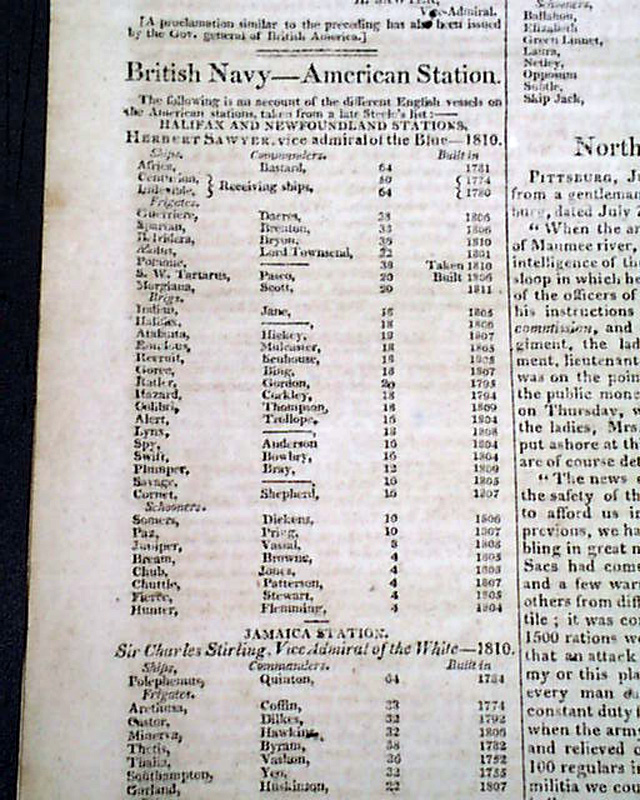 Vice-Admiral.
[A proclamation similar to the preceding has also been issued
by the Gov. general of British America.]
British Navy—American Station.
The following is an account of the different English vessels on
the American stations, taken from a late Steele's list:—
HALIFAX AND NEWFOUNDLAND STATIONS.
HERBERT SAWYER, vice admiral of the Blue—1810.
Ships. Commanders. Built in
Africa, Bastard, 64 1781
Centurion, 50 1774
Receiving ships,
64 1780
Frigates.
Guerriere, Dacres, 38 1806
Spartan, Brenton, 38 1806
Bryon, 36 1810
Lord Townsend, 32 1801
Pomone, ——— 38 Taken 1810
S. W. Tartarus, Pasco, 20 Built 1806
Morgiana, Scott, 20 1811
Brigs.
Indian, Jane, 18 1805
Halifax, ———, 18 1806
Atalanta, Hickey, 18 1807
Mulcaster, 18
Recruit, Senhouse, 18
Goree, Bing, 18 1807
Ratler, Gordon, 20 1795
Hazard, Cockley, 18 1794
Colibri, Thompson, 18 1809
Alert, Trollope, 16 1804
Lynx, ———, 18 1808
Spy, Anderson 16 1804
Swift, Bowbry, 16 1804
Plumper, Bray, 12
Savage, ———, 16 1805
Comet, Shepherd, 16 1807
Schooners.
Somers, Dickens, 10 1806
Paz, 10 1807
Juniper, Vassal, 8 1808
Bream, Browne, 4
Chub, Jones, 4
Chuttle, Patterson, 4 1807
Fierce, Stewart, 4 1805
Hunter, Flemming, 4 1804
JAMAICA STATION.
Sir Charles Stirling, Vice Admiral of the White—1810.
Ships, Commanders. Built in
Polephemus, Quinton, 64 1784
Frigates.
Arethusa, Coffin, 38 1774
Castor, Dilkes, 32 1792
Minerva, Hawkins, 32 1806
Thetis, Byram, 38 1782
Thalia, Vashon, 36 1782
Southampton, Yeo, 32 1755
Garland, Huskinson, 22 1807
Schooners,
Ballahou,
Elizabeth
Green Linnet,
Laura,
Netley,
Opposum
Subtle,
Skip Jack,
North
PITTSBURG, Ju
from a gentleman
burg, dated July
"When the ar
of Maumee river,
intelligence of the
sloop in which he
of the officers of
his instructions
commission, and
giment, the lad
ment, lieutenant
was on the poin
the public mone
on Thursday, w
the ladies, Mrs.
put ashore at th
are of course det
"The news
the safety of th
to afford us in
previous, we ha
bling in great n
Sacs had come
and a few war
others from diff
tile; it was co
1500 rations w
that an attack
my or this pla
every man
constant duty
when the army
and relieved
100 regulars in
militia we cou